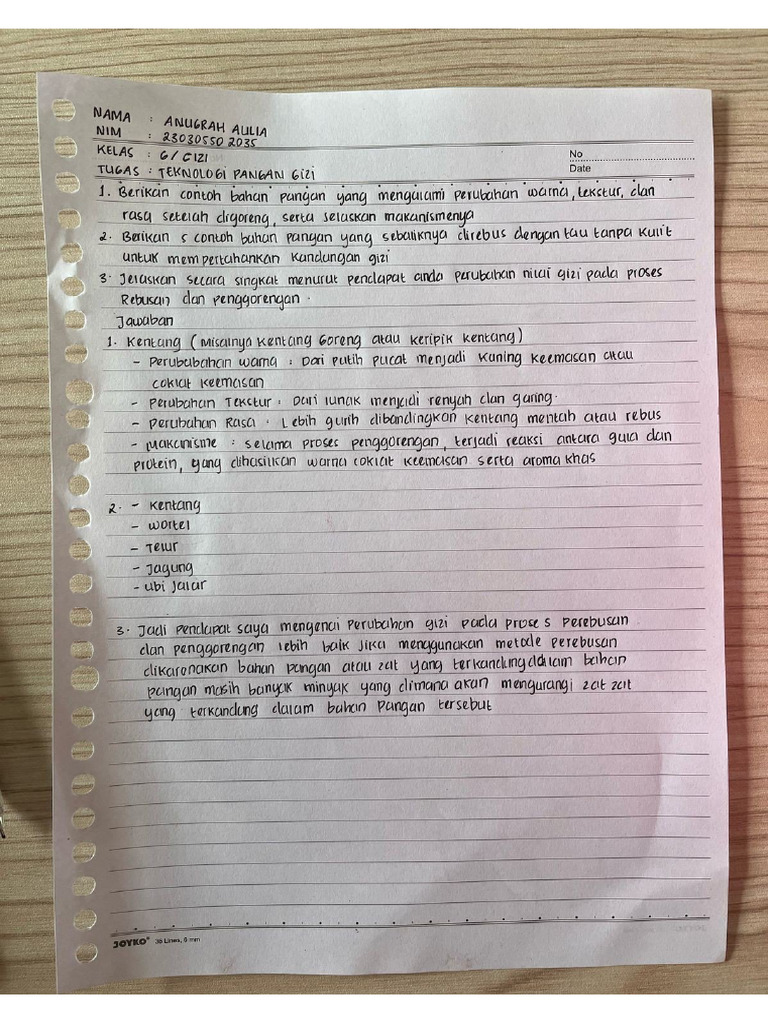 NAMA : ANUGRAH AULIA
NIM : 23030550 2035
KELAS : G/GIZI
No
TUGAS : TEKNOLOGI PANGAN GIZI
Date
1. Berikan contoh bahan pangan yang mengalami perubahan warna, tekstur, dan
rasa setelah digoreng, serta jelaskan makanismenya
2. Berikan 5 contoh bahan pangan yang sebaliknya direbus dengan tau tanpa kulit
untuk mempertahankan kandungan gizi
3. Jelaskan secara singkat menurut pendapat anda perubahan nilai gizi pada proses
Rebusan dan penggorengan.
Jawaban
1. Kentang (Misalnya Kentang Goreng atau keripik kentang)
- Perububahan warna : Dari putih pucat menjadi kuning keemasan atau
coklat keemasan
- Perubahan Tekstur : Dari lunak menjadi renyah dan garing.
- Perubahan Rasa : Lebih gurih dibandingkan kentang mentah atau rebus
- Makanisme : selama proses penggorengan, terjadi reaksi antara gula dan
protein, yang dihasilkan warna coklat keemasan serta aroma khas
2. - Kentang
- Wortel
- Telur
- Jagung
- Ubi jalar
3. Jadi pendapat saya mengenai perubahan gizi pada proses perebusan
dan penggorengan lebih baik jika menggunakan metode perebusan
dikarenakan bahan pangan atau zat yang terkandung dalam bahan
pangan masih banyak minyak yang dimana akan mengurangi zat zat
yang terkandung dalam bahan pangan tersebut
JOYKO 36 Lines, 6 mm